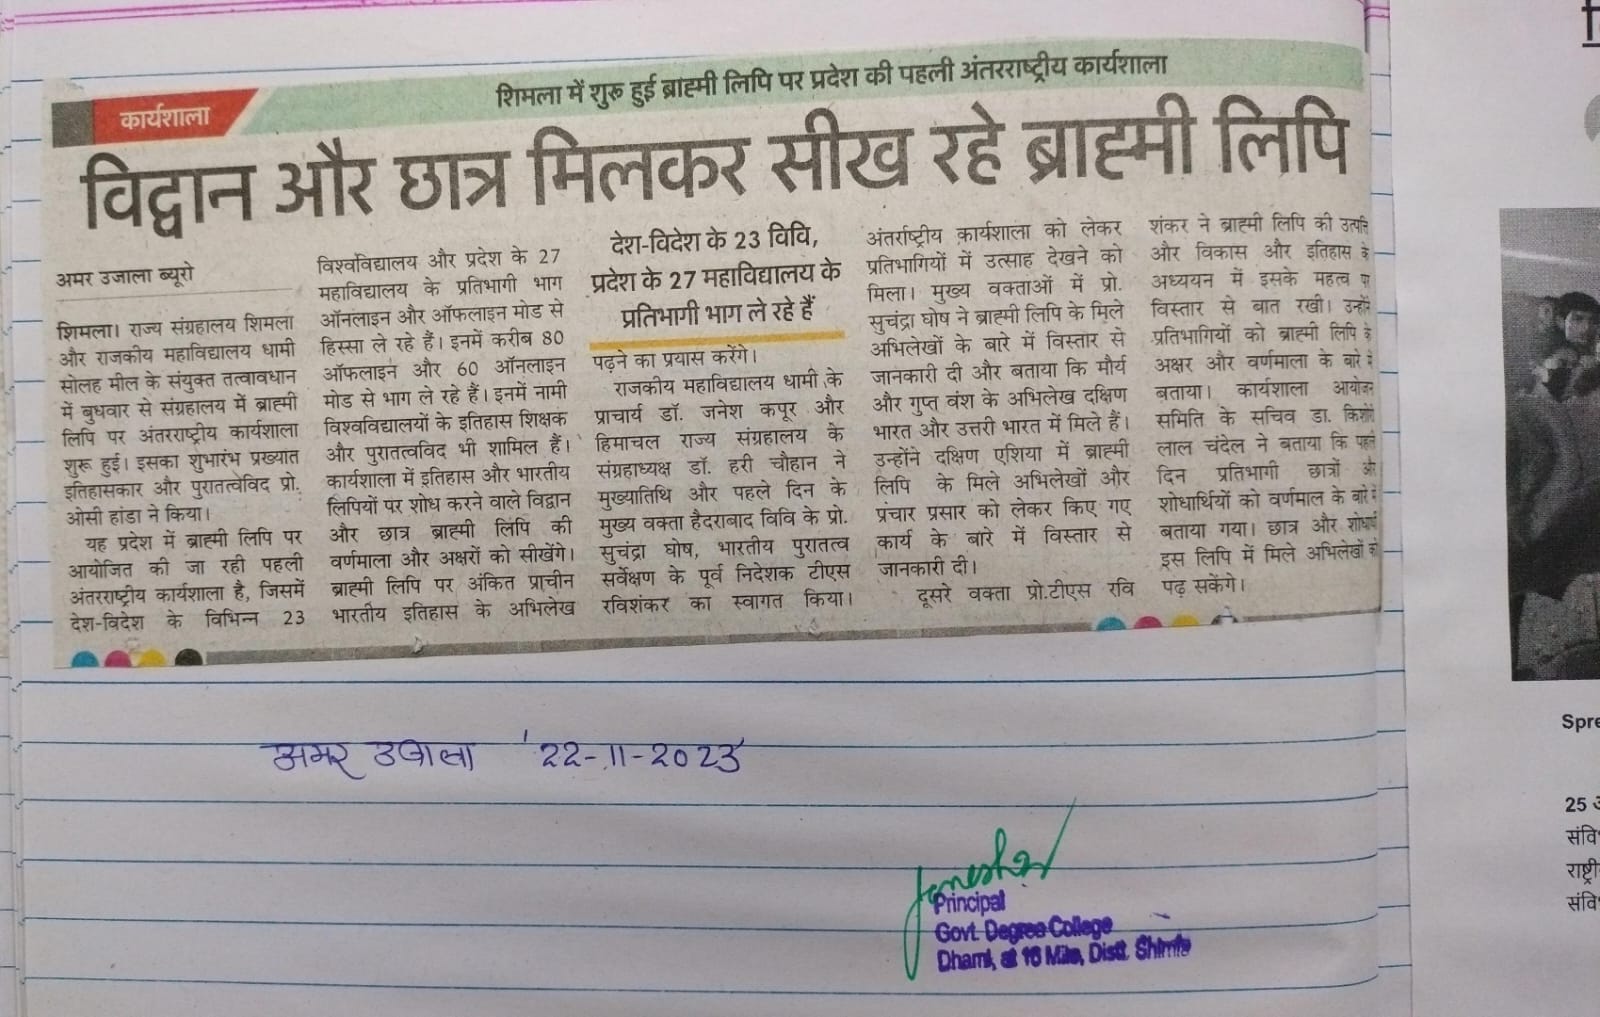 शिमला में शुरू हुई ब्राह्मी लिपि पर प्रदेश की पहली अंतरराष्ट्रीय कार्यशाला
कार्यशाला
विद्वान और छात्र मिलकर सीख रहे ब्राह्मी लिपि
अमर उजाला ब्यूरो
शिमला। राज्य संग्रहालय शिमला
और राजकीय महाविद्यालय धामी
सोलह मील के संयुक्त तत्वावधान
में बुधवार से संग्रहालय में ब्राह्मी
लिपि पर अंतरराष्ट्रीय कार्यशाला
शुरू हुई। इसका शुभारंभ प्रख्यात
इतिहासकार और पुरातत्वेविद प्रो.
ओसी हांडा ने किया।
यह प्रदेश में ब्राह्मी लिपि पर
आयोजित की जा रही पहली
अंतरराष्ट्रीय कार्यशाला है, जिसमें
देश-विदेश के विभिन्न 23
विश्वविद्यालय और प्रदेश के 27
महाविद्यालय के प्रतिभागी भाग
ऑनलाइन और ऑफलाइन मोड से
हिस्सा ले रहे हैं। इनमें करीब 80
ऑफलाइन और 60 ऑनलाइन
मोड से भाग ले रहे हैं। इनमें नामी
विश्वविद्यालयों के इतिहास शिक्षक
और पुरातत्वविद भी शामिल हैं।
कार्यशाला में इतिहास और भारतीय
लिपियों पर शोध करने वाले विद्वान
और छात्र ब्राह्मी लिपि की
वर्णमाला और अक्षरों को सीखेंगे।
ब्राह्मी लिपि पर अंकित प्राचीन
भारतीय इतिहास के अभिलेख
देश-विदेश के 23 विवि,
प्रदेश के 27 महाविद्यालय के
प्रतिभागी भाग ले रहे हैं
पढ़ने का प्रयास करेंगे।
राजकीय महाविद्यालय धामी के
प्राचार्य डॉ. जनेश कपूर और
हिमाचल राज्य संग्रहालय के
संग्रहाध्यक्ष डॉ. हरी चौहान ने
मुख्यातिथि और पहले दिन के
मुख्य वक्ता हैदराबाद विवि के प्रो.
सुचंद्रा घोष, भारतीय पुरातत्व
सर्वेक्षण के पूर्व निदेशक टीएस
रविशंकर का स्वागत किया।
अंतर्राष्ट्रीय कार्यशाला को लेकर
प्रतिभागियों में उत्साह देखने को
मिला। मुख्य वक्ताओं में प्रो.
सुचंद्रा घोष ने ब्राह्मी लिपि के मिले
अभिलेखों के बारे में विस्तार से
जानकारी दी और बताया कि मौर्य
और गुप्त वंश के अभिलेख दक्षिण
भारत और उत्तरी भारत में मिले हैं।
उन्होंने दक्षिण एशिया में ब्राह्मी
लिपि के मिले अभिलेखों और
प्रंचार प्रसार को लेकर किए गए
कार्य के बारे में विस्तार से
जानकारी दी।
दूसरे वक्ता प्रो.टीएस रवि
शंकर ने ब्राह्मी लिपि की उत्पत्ति
और विकास और इतिहास के
अध्ययन में इसके महत्व पर
विस्तार से बात रखी। उन्होंने
प्रतिभागियों को ब्राह्मी लिपि के
अक्षर और वर्णमाला के बारे में
बताया। कार्यशाला आयोजन
समिति के सचिव डा. किशोरी
लाल चंदेल ने बताया कि पहले
दिन प्रतिभागी छात्रों और
शोधार्थियों को वर्णमाल के बारे में
बताया गया। छात्र और शोधार्थी
इस लिपि में मिले अभिलेखों को
पढ़ सकेंगे।
अमर उजाला '22-11-2023'
Principal
Govt. Degree College
Dhami, at 16 Mile, Distt. Shimla
Spre
25
संवि
राष्ट्री
संवि